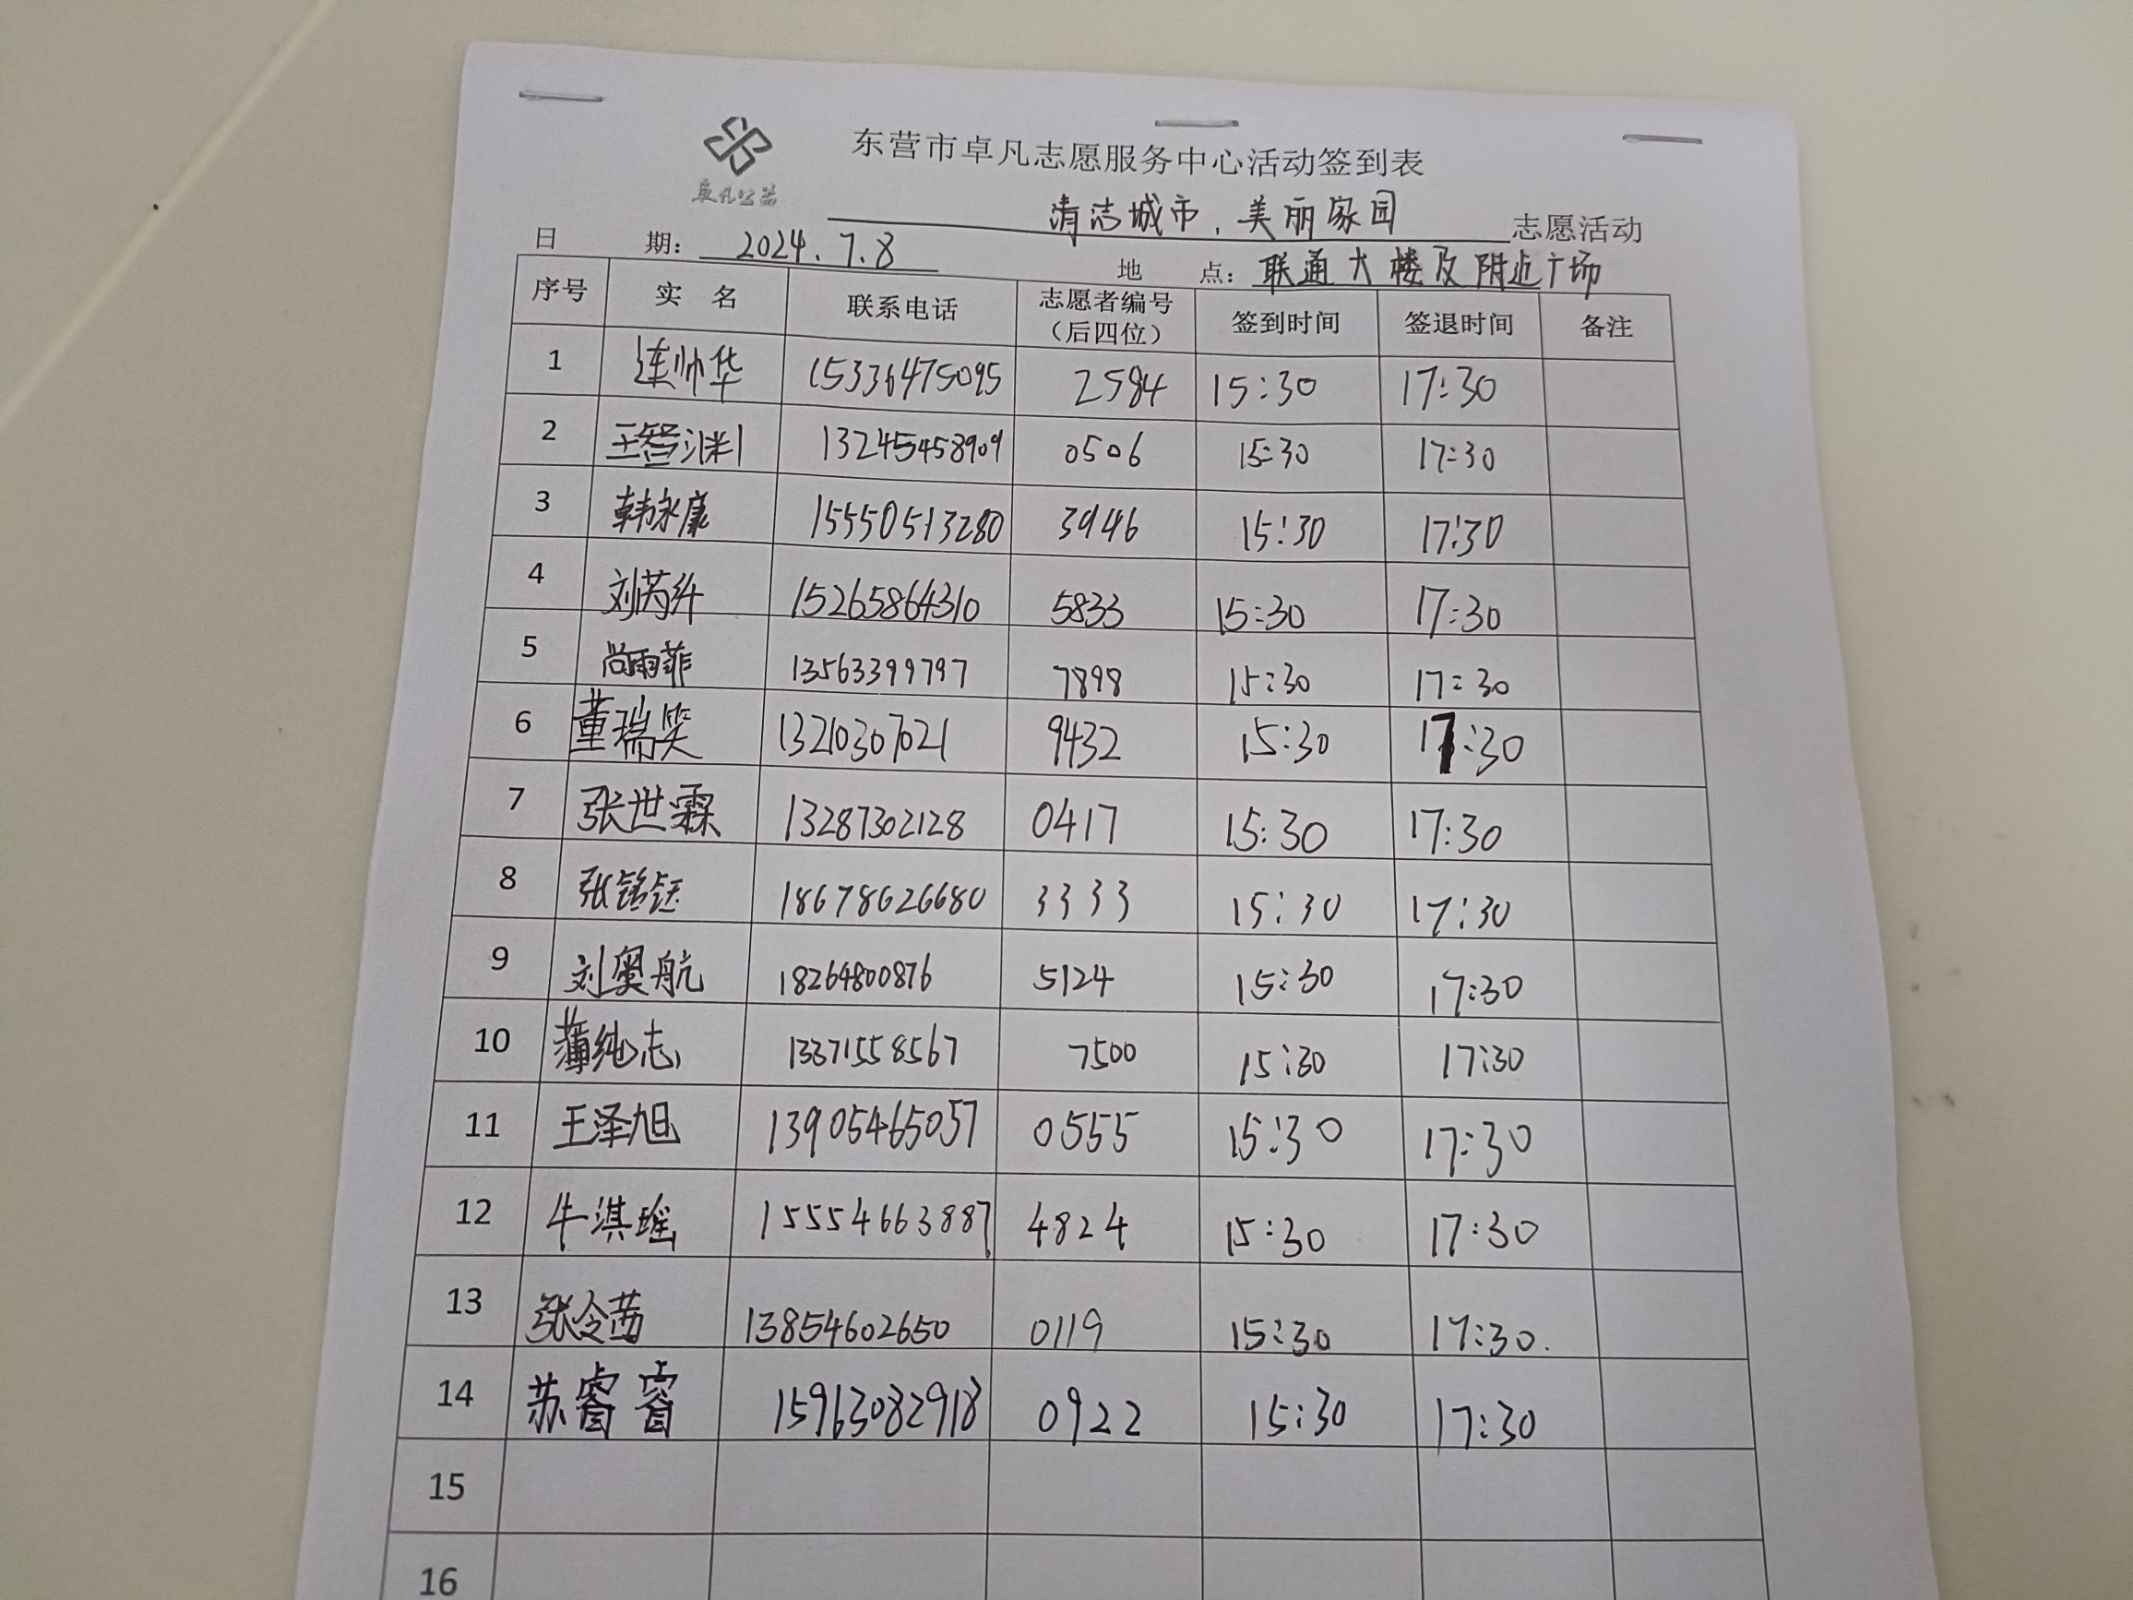 卓凡公益
东营市卓凡志愿服务中心活动签到表
清洁城市，美丽家园 志愿活动
日 期： 2024.7.8 地 点： 联通大楼及附近广场
序号 实 名 联系电话 志愿者编号（后四位） 签到时间 签退时间 备注
1 连帅华 15336475095 2584 15:30 17:30
2 王智渊 13245458909 0506 15:30 17:30
3 韩永康 15550513280 3946 15:30 17:30
4 刘芮 15265864310 5833 15:30 17:30
5 尚雨菲 13563399797 7898 15:30 17:30
6 董瑞笑 13210307021 9432 15:30 17:30
7 张世霖 13287302128 0417 15:30 17:30
8 张铭钰 18678626680 3333 15:30 17:30
9 刘奥航 18264800876 5124 15:30 17:30
10 薄纯志 13371558567 7500 15:30 17:30
11 王泽旭 13905465057 0555 15:30 17:30
12 牛淇瑶 15554663887 4824 15:30 17:30
13 张令茜 13854602650 0119 15:30 17:30.
14 苏睿睿 15963082918 0922 15:30 17:30
15
16